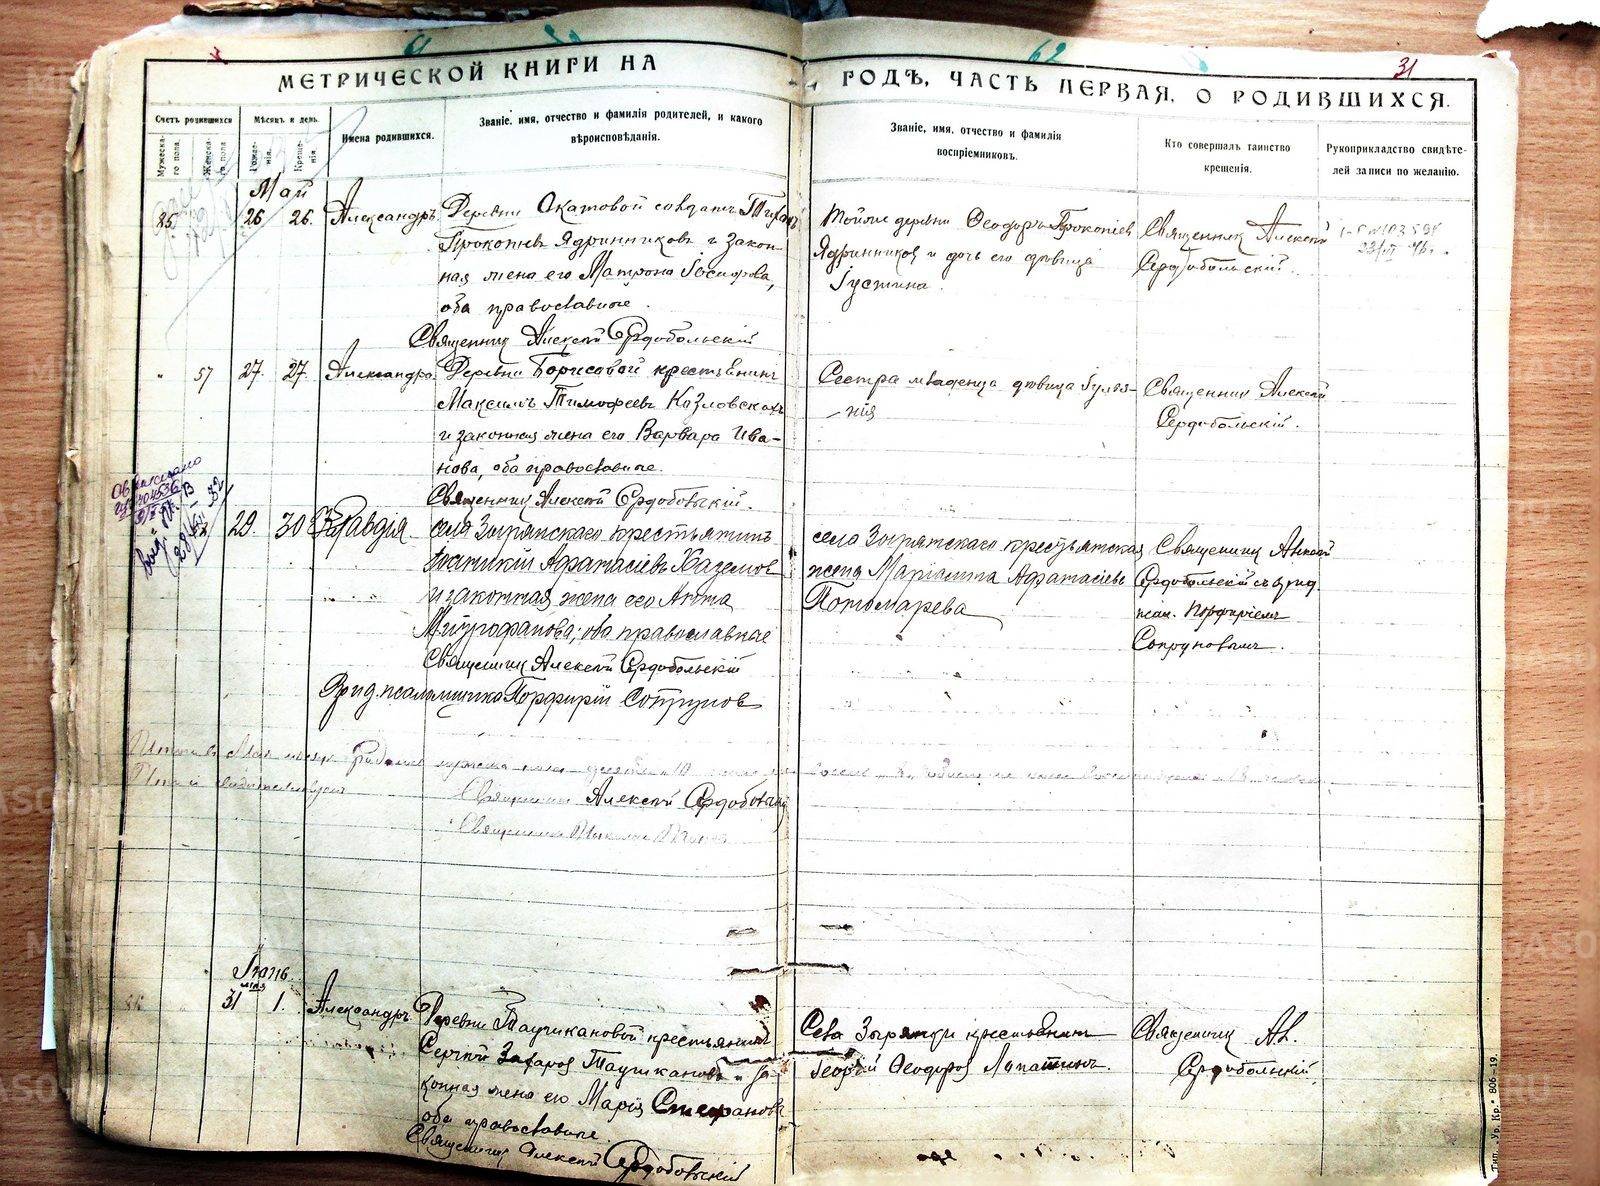 62
31
МЕТРИЧЕСКОЙ КНИГИ НА
ГОДЪ, ЧАСТЬ ПЕРВАЯ, О РОДИВШИХСЯ.
Счетъ родившихся
Мѣсяцъ и день.
Мужеска-го пола.
Женска-го пола
Рожде-нія.
Креще-нія.
Имена родившихся.
Званіе, имя, отчество и фамилія родителей, и какого
вѣроисповѣданія.
Званіе, имя, отчество и фамилія
воспріемниковъ.
Кто совершалъ таинство
крещенія.
Рукоприкладство свидѣте-
лей записи по желанію.
Май
25 26 26. Александръ
Деревни Окатовой солдатъ Тихонъ
Прокопіевъ Ядринниковъ и закон-
ная жена его Матрона Іосифова,
оба православные.
Священникъ Алексѣй Сердобольскій
Тойже деревни Ѳеодоръ Прокопіевъ
Ядринниковъ и дочь его дѣвица
Іустина.
Священникъ Алексѣй
Сердобольскій.
57 27. 27. Александра
Деревни Борисовой крестьянинъ
Максимъ Тимофеевъ Козловскихъ
и законная жена его Варвара Ива-
нова, оба православные.
Священникъ Алексѣй Сердобольскій.
Сестра младенца дѣвица Іуліа-
нія
Священникъ Алексѣй
Сердобольскій.
29. 30 Клавдія
села Зырянскаго крестьянинъ
Іоанникій Афанасіевъ
и законная жена его Анна
Митрофанова; оба православные
Священникъ Алексѣй Сердобольскій
Врид. псаломщика Порфирій Сопруновъ
села Зырянскаго крестьянская
жена Маріамна Афанасіева
Пономарева
Священникъ Алексѣй
Сердобольскій съ врид.
псал. Порфиріемъ
Сопруновымъ.
Священникъ Алексѣй Сердобольскій
Священникъ
Іюнь
мая
31 1. Александръ
Деревни Таушкановой крестьянинъ
Сергѣй Захаровъ Таушкановъ и за-
конная жена его Марія Стефанова
оба православные.
Священникъ Алексѣй Сердобольскій
Села Зырянки крестьянинъ
Георгій Ѳеодоровъ Лапатинъ.
Священникъ Ал.
Сердобольскій
Тип. „Ур. Кр.“ 806—19.